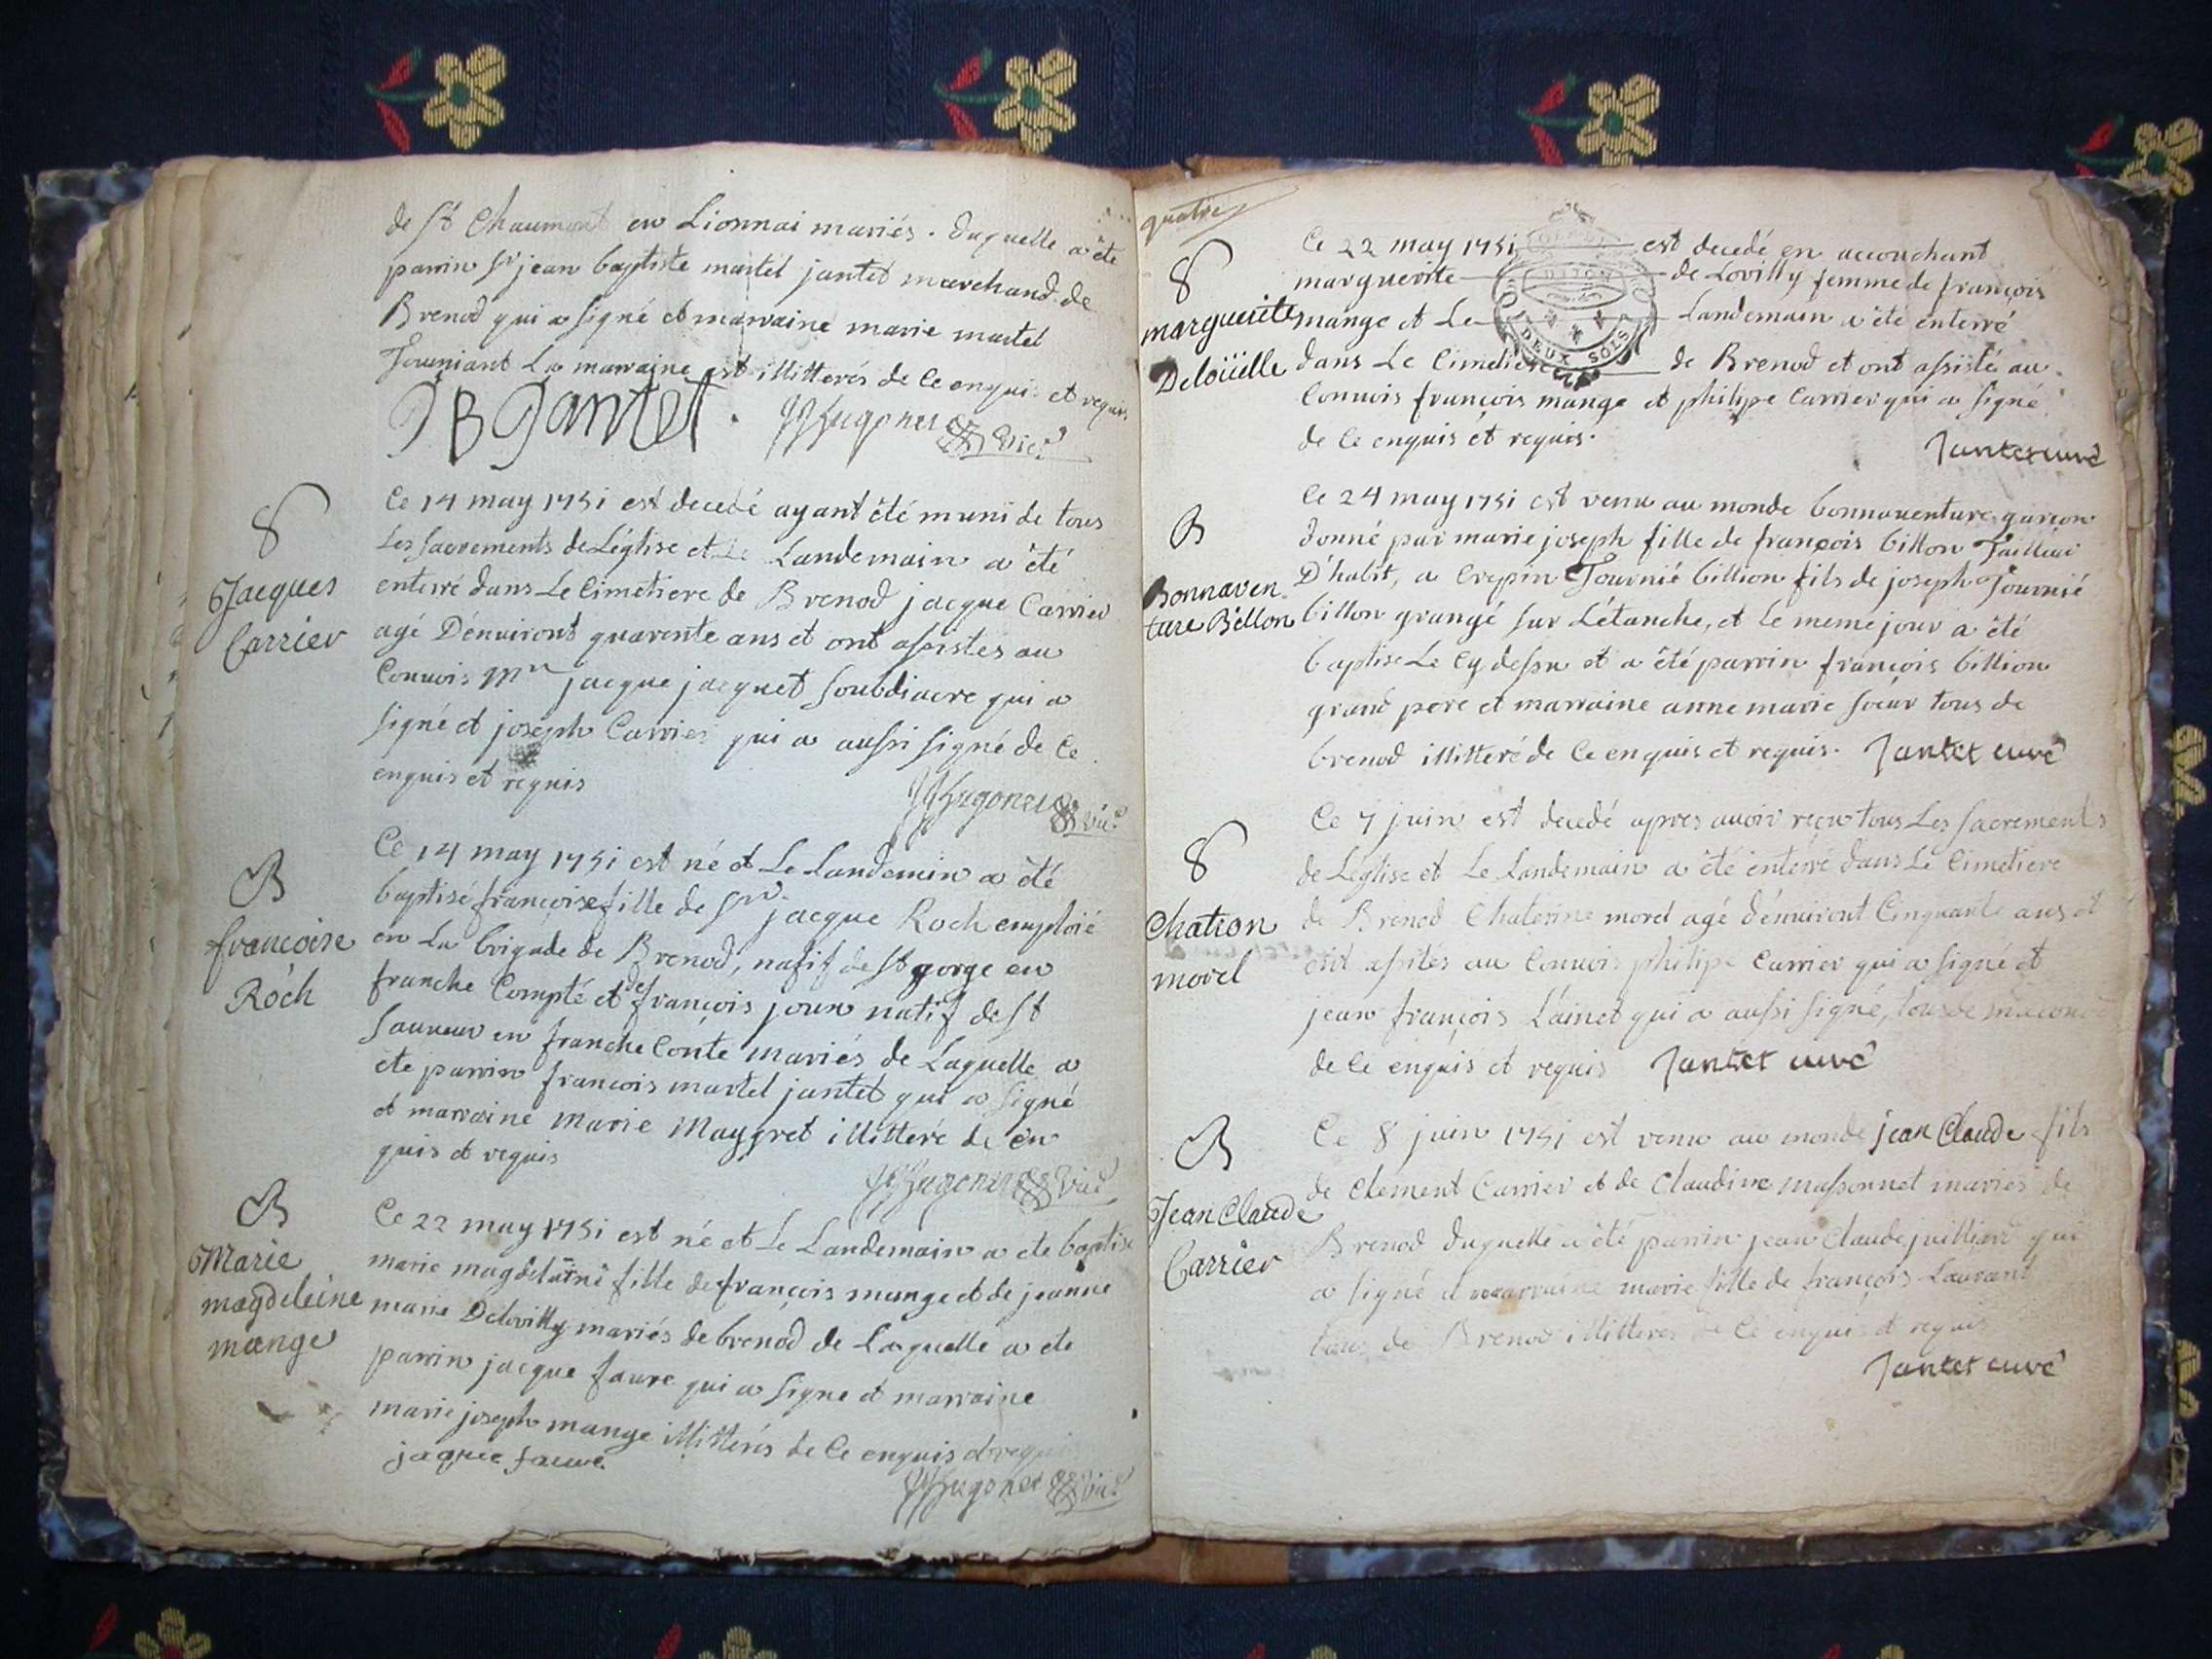 de St Chaumont en Lionnai mariés. duquelle a été
parrin sr jean baptiste martel jantet marchand de
Brenod qui a signé et marraine marie martel
Tourniant La marraine est illitterés de ce enqui et requis
JB Jantet. Hugonet vic.
8
Jacques
Carrier
Ce 14 may 1751 est decedé ayant été muni de tous
Les sacrements de Léglise et Le Landemain a été
enterré dans Le Cimetiere de Brenod jacque Carrier
agé Dénuiront quarente ans et ont assistés au
Conuois mre jacque jacquet soubdiacre qui a
signé et joseph Carrier qui a aussi signé de ce
enquis et requis
Hugonet vic.
B
francoise
Roch
Ce 14 may 1751 est né et Le Landemin a été
baptisé francoise fille de sr. jacque Roch emploié
en La brigade de Brenod, natif de st gorge en
franche Compté et de françois joux natif de st
sauueur en franche Conte mariés de Laquelle a
éte parrin francois martel jantet qui a signé
et marraine Marie Maygret illitteré de en
quis et requis
Hugonet vic.
B
Marie
magdeleine
mange
Ce 22 may 1751 est né et Le Landemain a ete baptise
marie magdelaine fille de françois mange et de jeanne
marie Delovilly mariés de brenod de Laquelle a ete
parrin jacque faure qui a signe et marraine
marie joseph mange illitterés de ce enquis et requi
jaque faure.
Hugonet vic.
quatre
8
marguerite
Deloüille
Ce 22 may 1751 est decedé en accouchant
marguerite de Lovilly femme de françois
mange et Le Landemain a été enterré
dans Le Cimetiere de Brenod et ont assistés au
Conuois françois mange et philipe Carrier qui a signé
de ce enquis et requis.
DEUX SOLS
Jantet curé
B
Bonnaven
ture Billon
Ce 24 may 1751 est venu au monde bonnauenture garçon
donné par marie joseph fille de françois billon Tailliai
D'habit, a Crepin Tournié billion fils de joseph Tournié
billon grangé sur L'étanche, et Le meme jour a été
baptise Le cy dessu et a été parrin françois billion
grand pere et marraine anne marie sœur tous de
brenod illitteré de ce enquis et requis. Jantet curé
8
Chatron
morel
Ce 7 juin est decedé apres auoir reçu tous Les sacrements
de Léglise et Le Landemain a été enterré dans Le Cimetiere
de Brenod Chaterine morel agé dénuiront Cinquante ans et
ont assités au Conuois philipe Carrier qui a signé et
jean françois L'ainet qui a aussi signé, tous de
de ce enquis et requis Jantet curé
B
Jean Claude
Carrier
Ce 8 juin 1751 est venu au monde jean Claude fils
de Clement Carrier et de Claudine massonnet mariés de
Brenod duquelle a été parrin jean Claude juilliard qui
a signé et marraine marie fille de françois Laurant
tous de Brenod illitteres de ce enquis et requis
Jantet curé